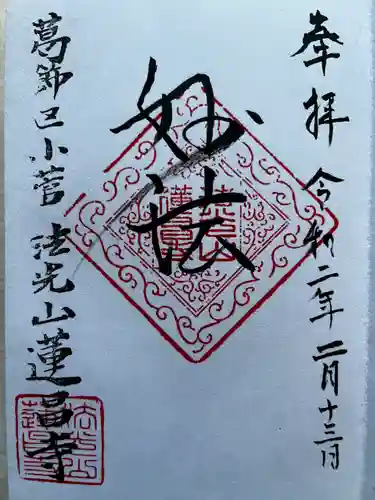 奉拝 令和二年二月十三日
妙法
葛飾区小菅 法光山蓮昌寺